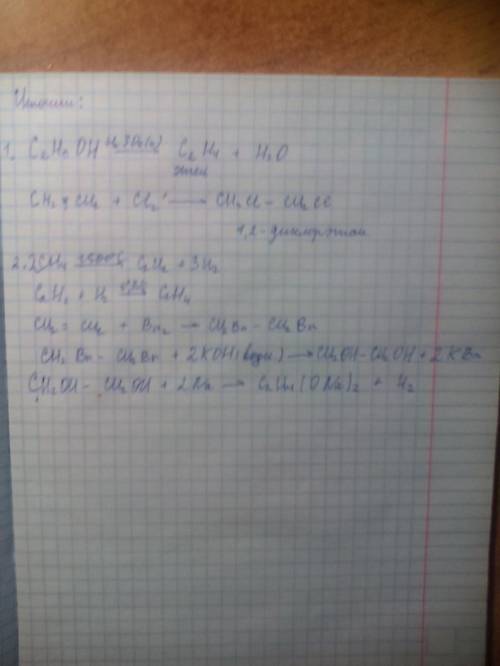 1. C₂H₅OH H₂SO₄(к) → C₂H₄ + H₂O
этен
CH₂=CH₂ + Cl₂ → CH₂Cl - CH₂Cl
1,2-дихлорэтан
2. 2CH₄ 1500°C → C₂H₂ + 3H₂
C₂H₂ + H₂ → C₂H₄
CH₂ = CH₂ + Br₂ → CH₂Br - CH₂Br
CH₂Br - CH₂Br + 2KOH (водн) → CH₂OH-CH₂OH + 2KBr
CH₂OH - CH₂OH + 2Na → C₂H₄(ONa)₂ + H₂